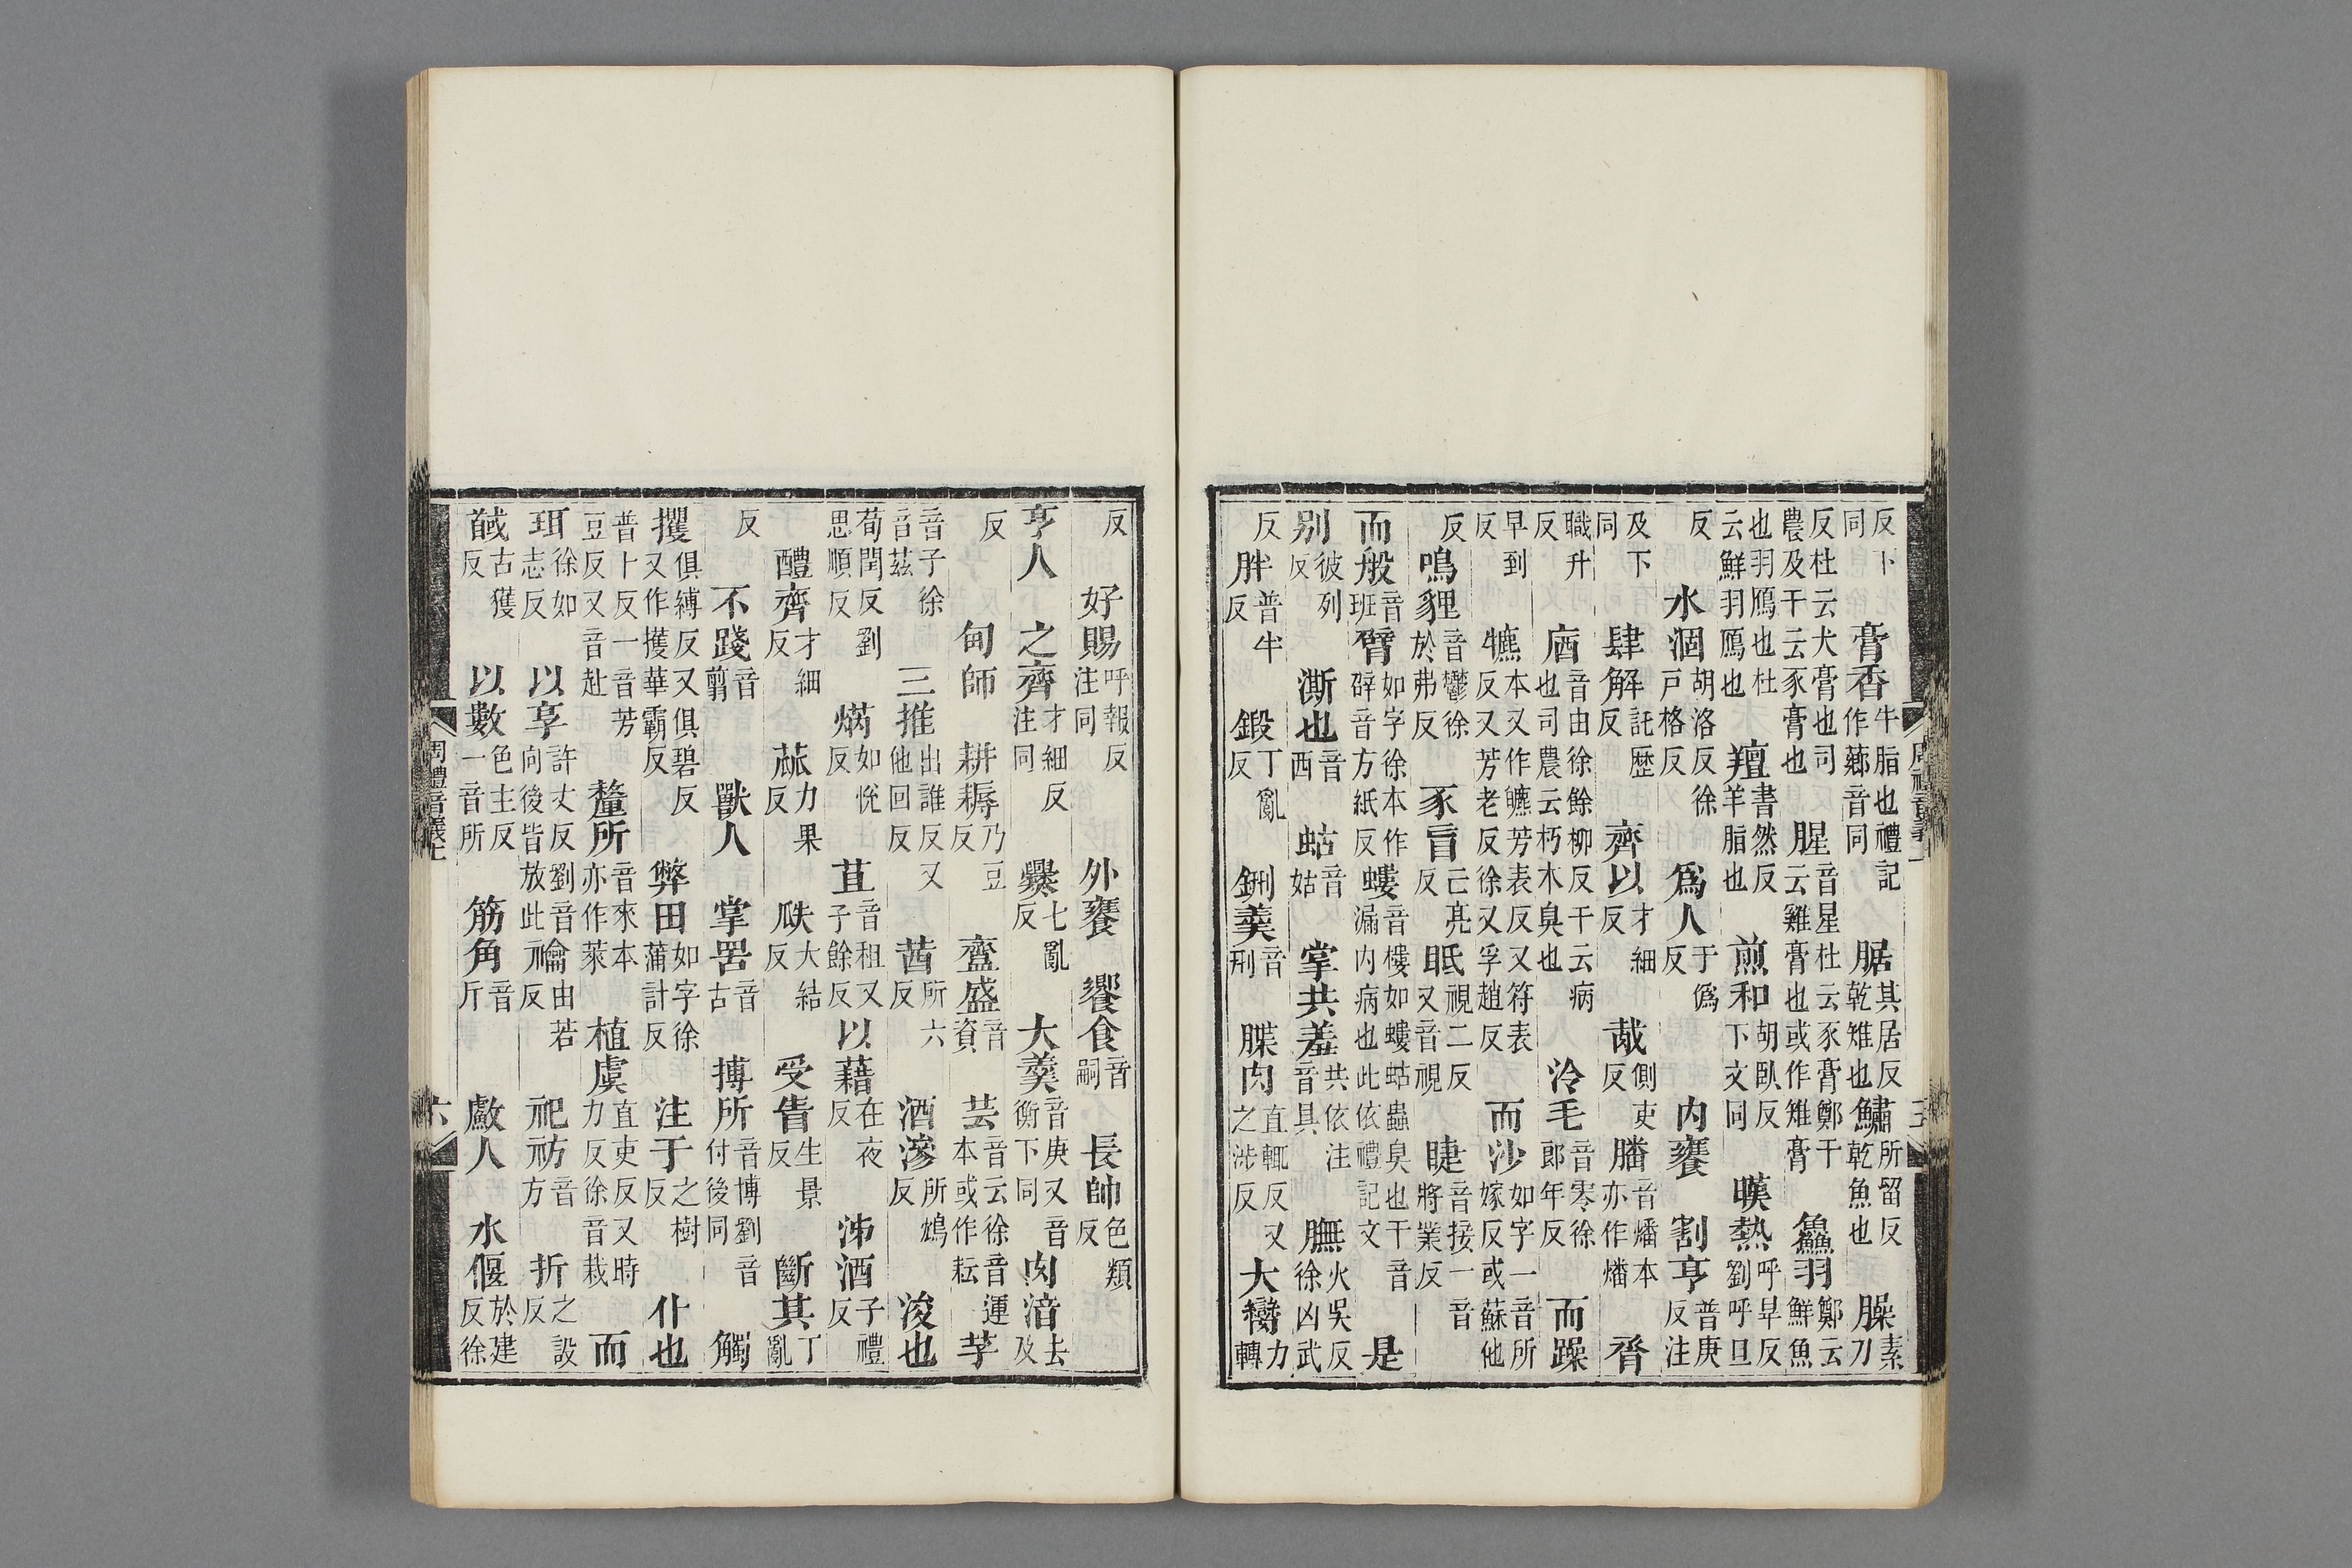 反下同膏香牛脂也禮記作薌音同腒其居反乾雉也鱐所留反乾魚也臊素刀
反杜云犬膏也司農及干云豕膏也腥音星杜云豕膏鄭干云雞膏也或作雉膏鱻羽鄭云鮮魚
也羽鴈也杜云鮮羽鴈也羶書然反羊脂也煎和胡臥反下文同暵熱呼旱反劉呼旦
反水涸胡洛反徐戶格反爲人于僞反内饔割亨普庚反注
及下同肆解託歷反齊以才細反胾側吏反膰音燔本亦作燔脀
職升反庮音由徐餘柳反干云病也司農云朽木臭也泠毛音零徐郎年反而躁
早到反犥本又作皫芳表反又符表反又芳老反徐又孚趙反而沙如字一音所嫁反或蘇他
反鳴貍音鬱徐於弗反豕盲亡亮反眡視二反又音視睫音接一音將業反
而般音班臂如字徐本作辟音方紙反螻音樓如螻蛄蟲臭也干音漏内病也此依禮記文是
别彼列反澌也音西蛄音姑掌共羞共依注音具膴火吳反徐凶武
反胖普半反鍛丁亂反鉶羹音刑牒肉直輒反又之涉反大臠力轉
反好賜呼報反注同外饔饗食音嗣長帥色類反
亨人之齊才細反注同爨七亂反大羹音庚又音衡下同肉湆去及
反甸師耕耨乃豆反齍盛音資芸音云徐音運本或作耘芓
音子徐音茲三推出誰反又他回反茜所六反酒滲所鴆反浚也
荀閏反劉思順反焫如悅反苴音租又子餘反以藉在夜反泲酒子禮反
醴齊才細反蓏力果反瓞大結反受眚生景反斷其丁亂
反不踐音翦獸人掌罟音古搏所音博劉音付後同觸
攫俱縛反又俱碧反又作擭華霸反弊田如字徐蒲計反注于之樹反仆也
普卜反一音芳豆反又音赴斄所音來本亦作萊植虞直吏反又時力反徐音栽而
珥徐如志反以享許丈反劉音向後皆放此禴由若反祀祊音方折之設反
馘古獲反以數色主反一音所筋角音斤䱷人水偃於建反徐
周禮音義上
六